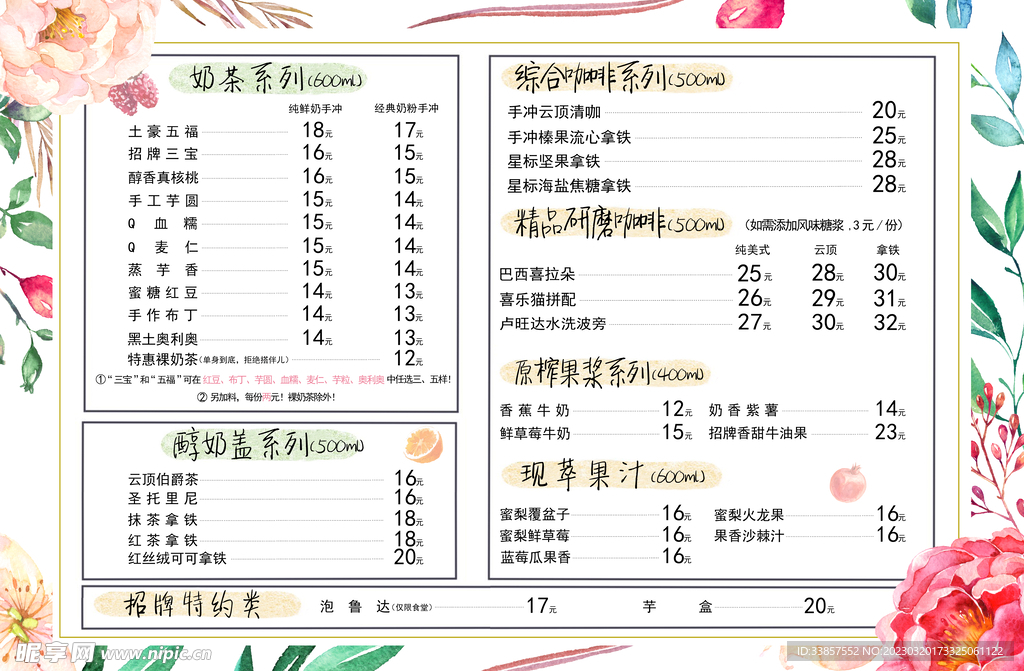 奶茶系列(600mL)
纯鲜奶手冲 经典奶粉手冲
土豪五福 18元 17元
招牌三宝 16元 15元
醇香真核桃 16元 15元
手工芋圆 15元 14元
Q血糯 15元 14元
Q麦仁 15元 14元
蒸芋香 15元 14元
蜜糖红豆 14元 13元
手作布丁 14元 13元
黑土奥利奥 14元 13元
特惠裸奶茶(单身到底,拒绝搭伴儿) 12元
①“三宝”和“五福”可在 红豆、布丁、芋圆、血糯、麦仁、芋粒、奥利奥 中任选三、五样!
② 另加料,每份两元! 裸奶茶除外!
醇奶盖系列(500mL)
云顶伯爵茶 16元
圣托里尼 16元
抹茶拿铁 18元
红茶拿铁 18元
红丝绒可可拿铁 20元
综合咖啡系列(500mL)
手冲云顶清咖 20元
手冲榛果流心拿铁 25元
星标坚果拿铁 28元
星标海盐焦糖拿铁 28元
精品研磨咖啡(500mL) (如需添加风味糖浆,3元/份)
纯美式 云顶 拿铁
巴西喜拉朵 25元 28元 30元
喜乐猫拼配 26元 29元 31元
卢旺达水洗波旁 27元 30元 32元
原榨果浆系列(400mL)
香蕉牛奶 12元 奶香紫薯 14元
鲜草莓牛奶 15元 招牌香甜牛油果 23元
现苹果汁(600mL)
蜜梨覆盆子 16元 蜜梨火龙果 16元
蜜梨鲜草莓 16元 果香沙棘汁 16元
蓝莓瓜果香 16元
招牌特约类 泡鲁达(仅限食堂) 17元 芋盒 20元
昵享网 www.nipic.cn
ID:33857552 NO:20230320173325061122